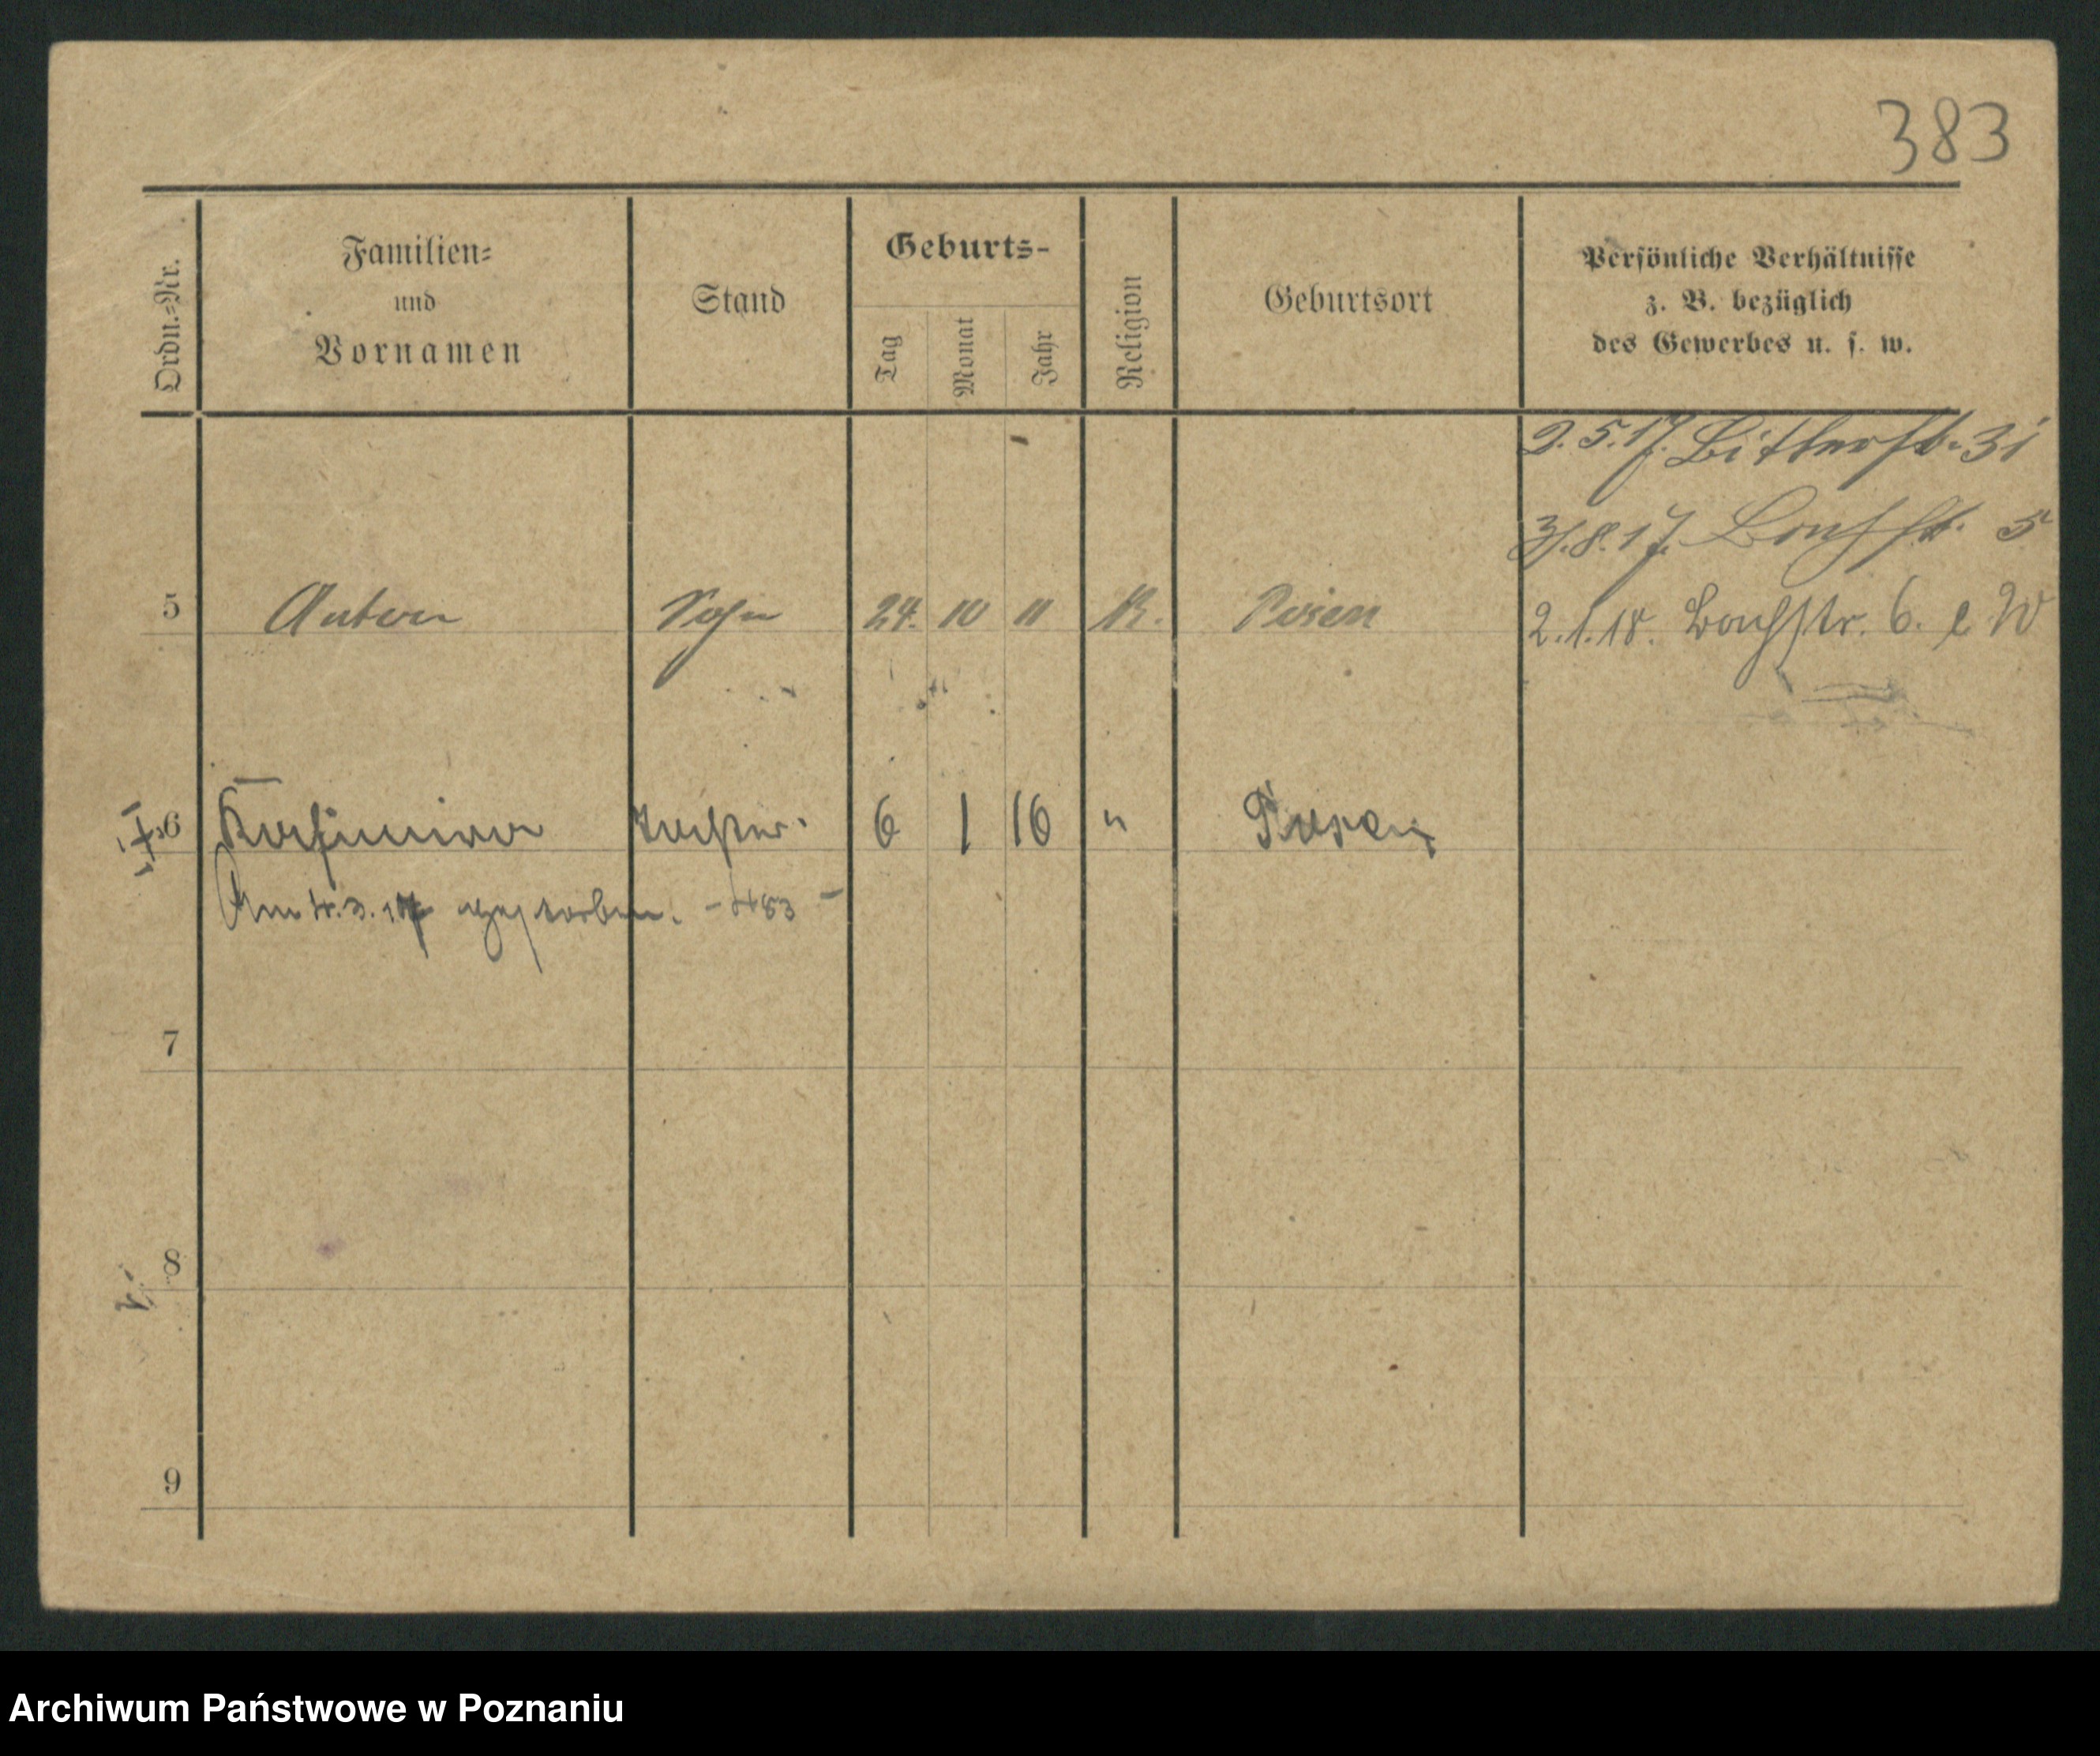 383
Ordn.=Nr.
Familien=
und
Vornamen
Stand
Geburts-
Tag
Monat
Jahr
Religion
Geburtsort
Persönliche Verhältnisse
z. B. bezüglich
des Gewerbes u. s. w.
2.5.17. 31
31.8.17. Bachstr. 5
5 Anton Sohn 24. 10 11 K. Posen
2.1.18. Bachstr. 6. e W
6 Tochter. 6 1 16 " Posen
Am 4.3.17 gestorben. - 483 -
7
8
9
Archiwum Państwowe w Poznaniu